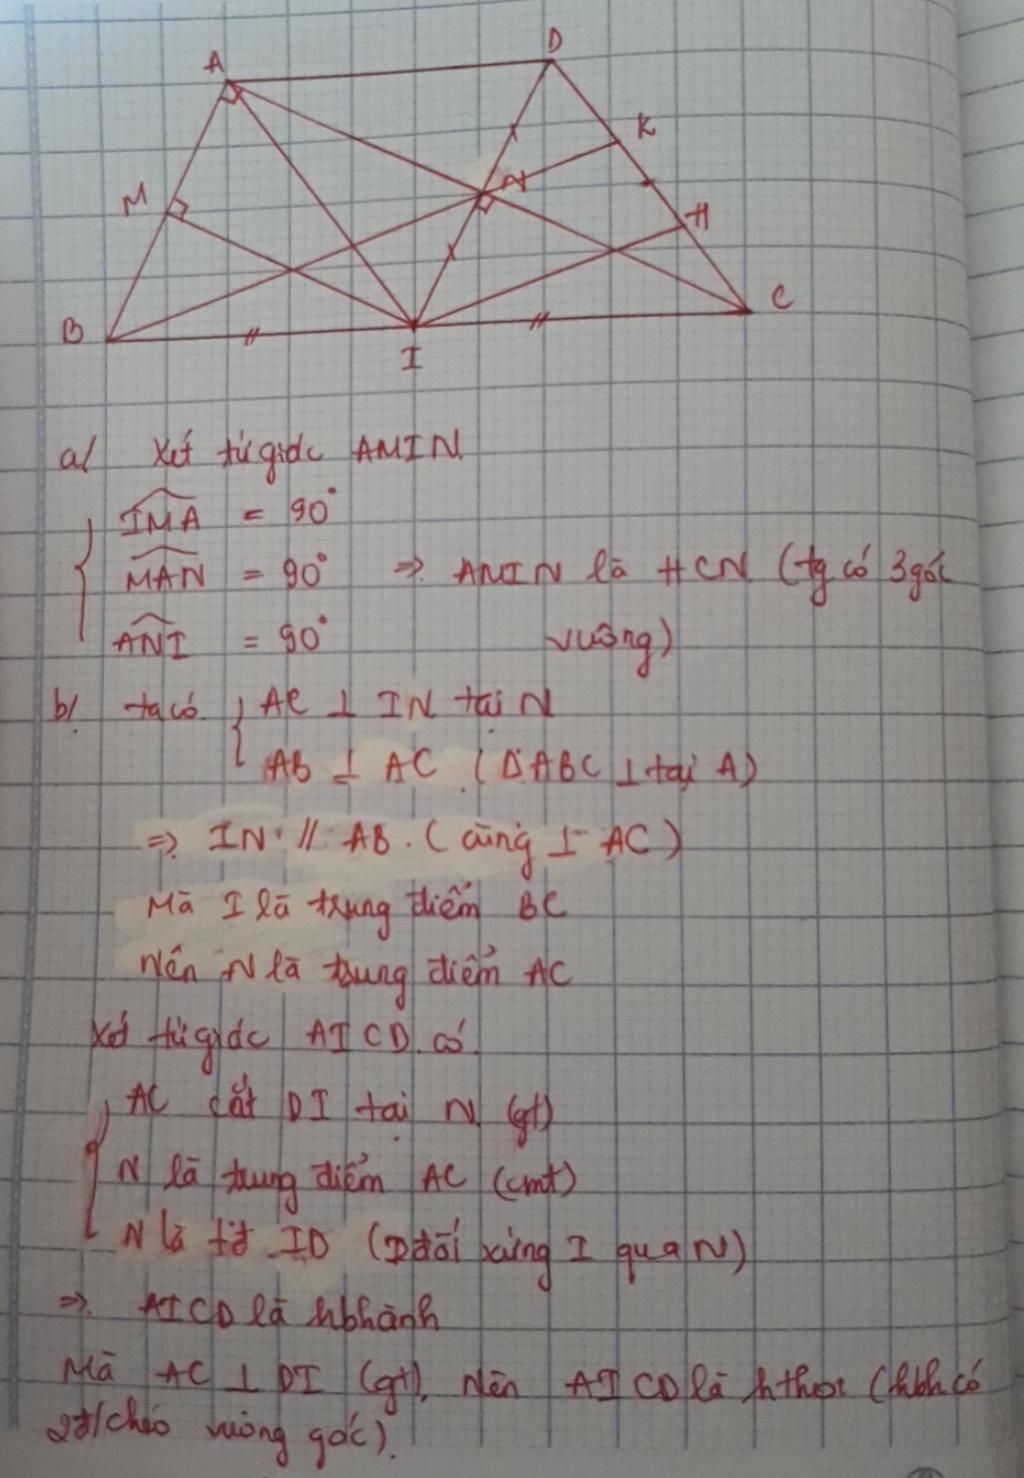 A
D
K
M
N
H
B
I
C
a/ Xét tứ giác AMIN
IMA = 90°
MAN = 90° => AMIN là HCN (tg có 3 góc
ANI = 90° vuông)
b/ ta có AC ⊥ IN tại N
AB ⊥ AC (ΔABC ⊥ tại A)
=> IN // AB. (cùng ⊥ AC)
Mà I là trung điểm BC
Nên N là trung điểm AC
Xét tứ giác AICD có
AC cắt DI tại N (gt)
N là trung điểm AC (cmt)
N là tđ ID (D đối xứng I qua N)
=> AICD là hbhành
Mà AC ⊥ DI (gt), Nên AICD là hthoi (hbh có
2đ/chéo vuông góc).